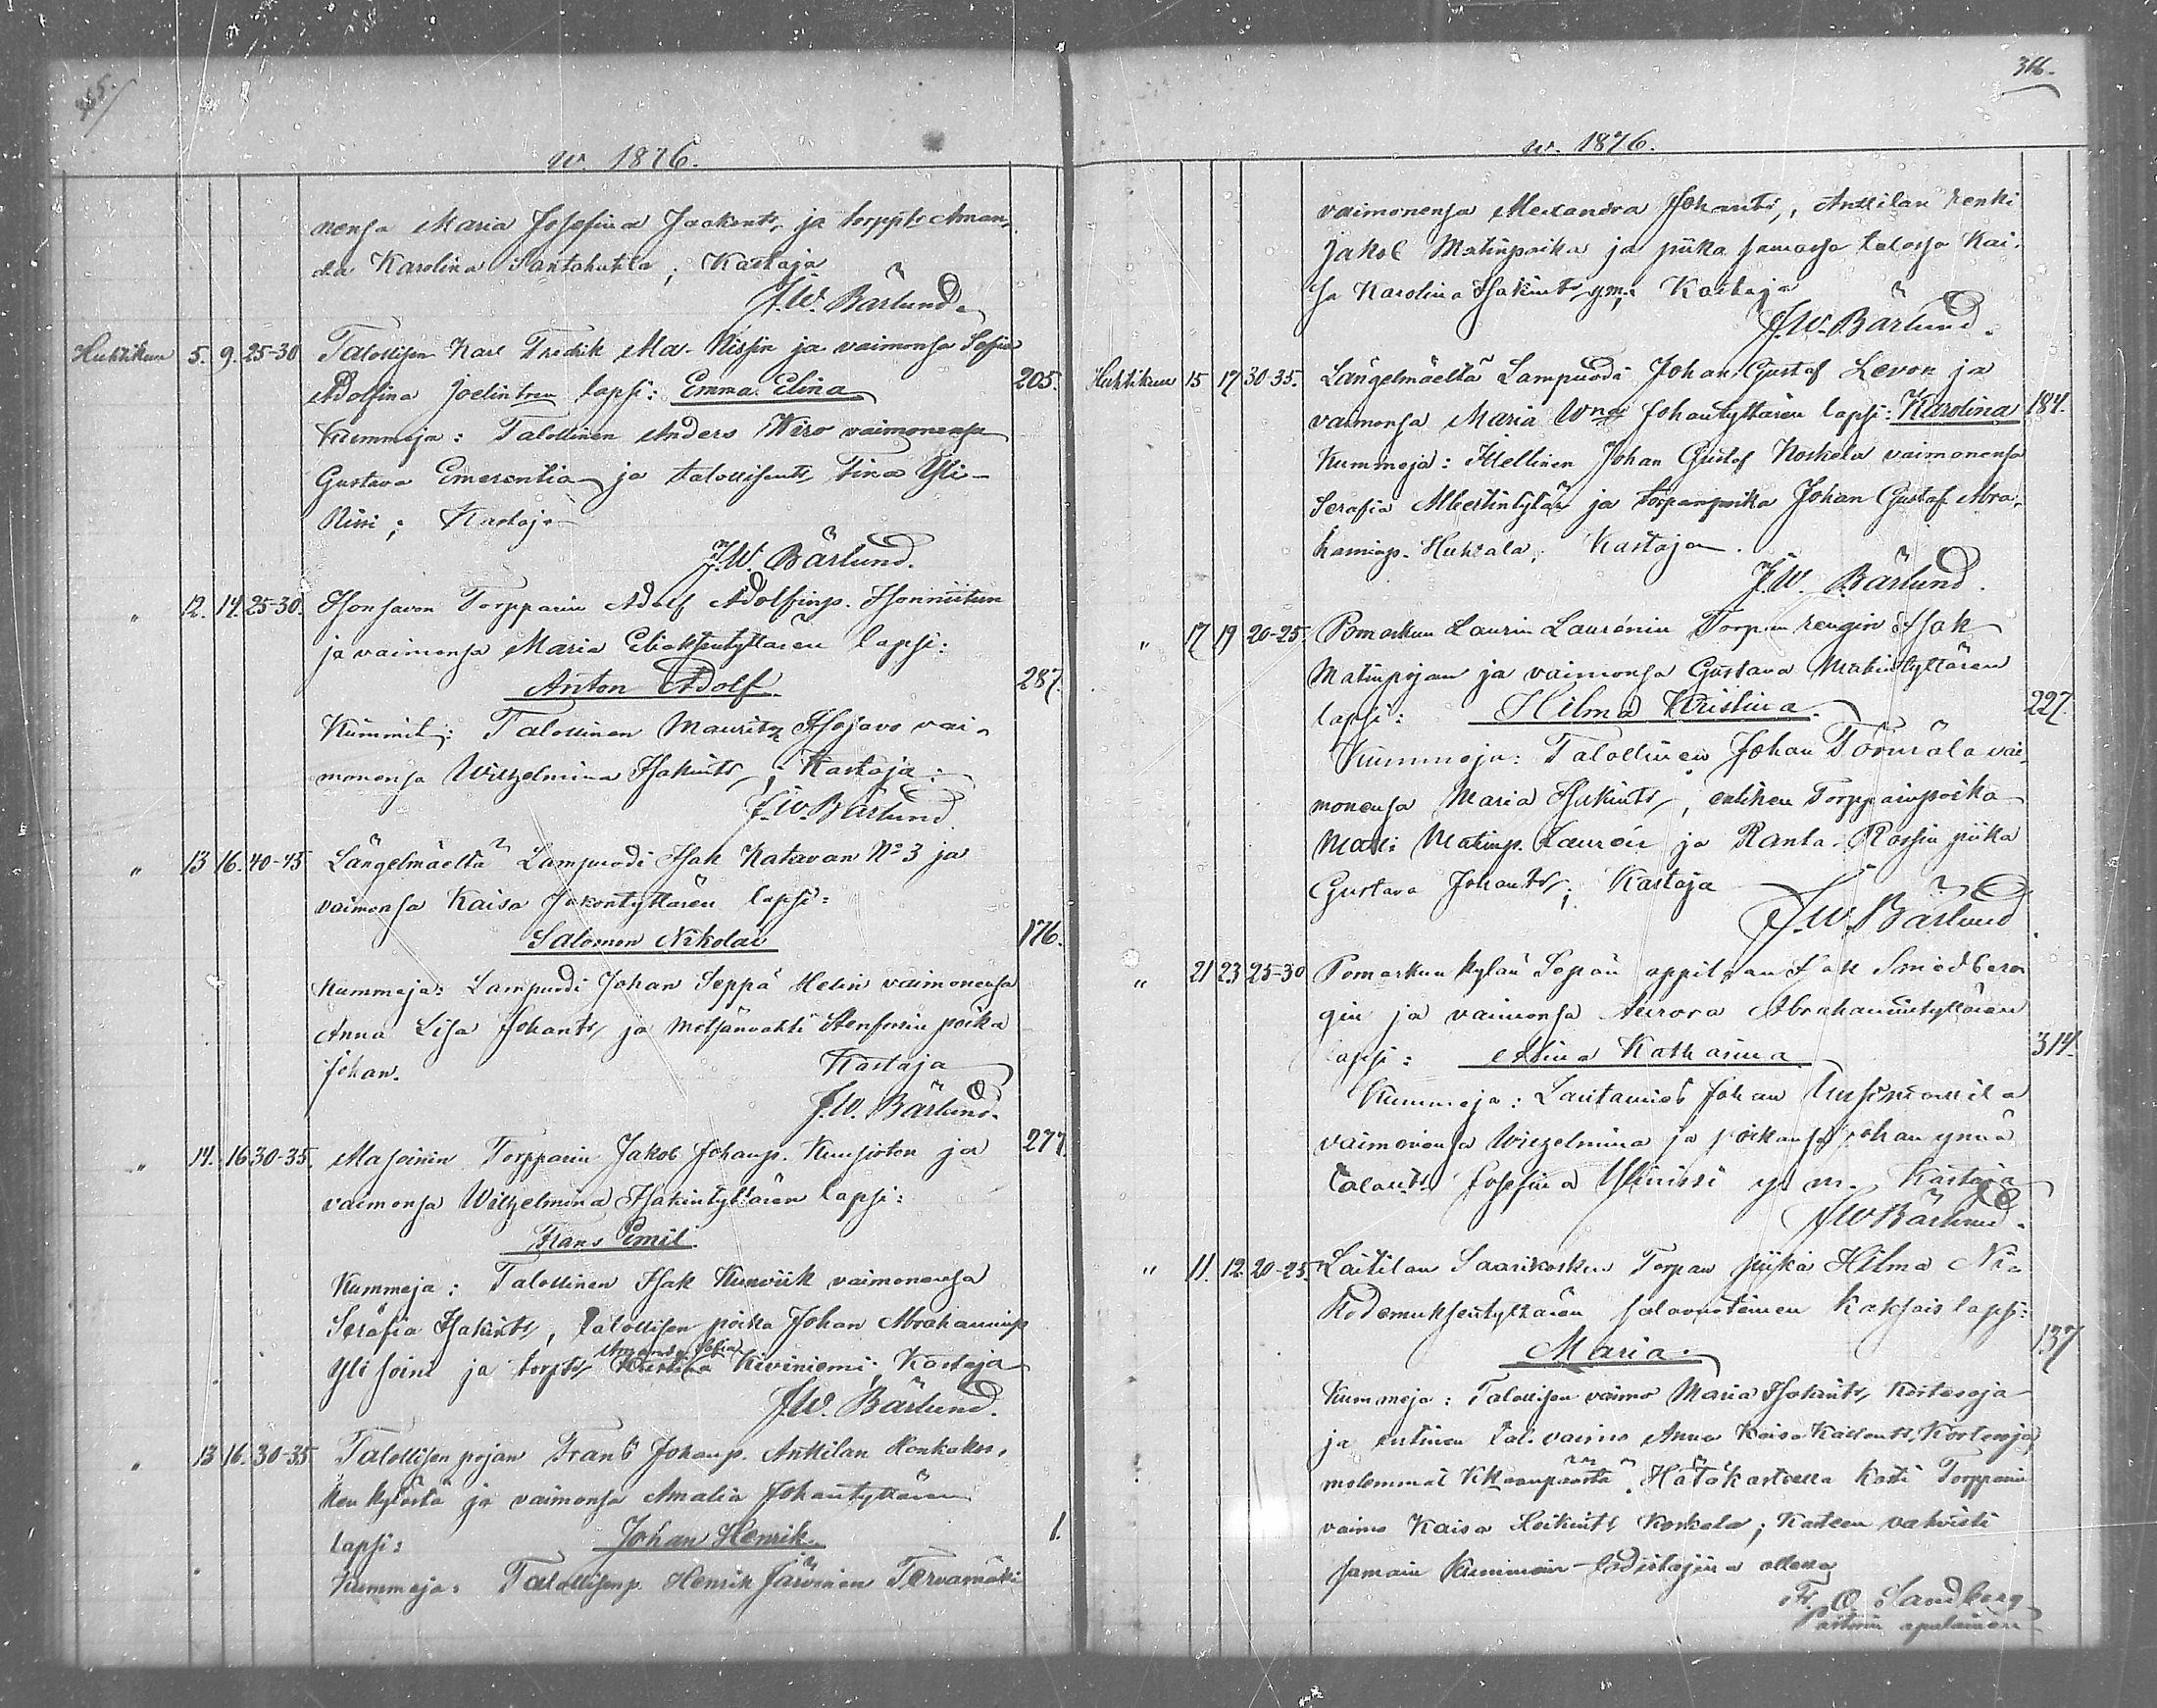 w. 1876.
nensa Maria Josefina Jaakonts, ja torppts Aman-
da Karolina Santahuhta; Kastaja
J.W. Bärlund.
Huhtikuu 5. 9. 25-30 Talollisen Karl Fredrik Ala-Nissin ja vaimonsa Sofia
Adolfina Joelintren lapsi: Emma Elina 205.
Kummeja: Talollinen Anders Wiro vaimonensa
Gustava Emerentia ja talollisents Tina Yli-
Nissi; Kastaja
J.W. Bärlund.
" 12. 14. 25-30. Honsavon Torpparin Adolf Adolfinp. Honniitun
ja vaimonsa Maria Eliaksentyttären lapsi:
Anton Adolf 287.
Kummit: Talollinen Mauritz Isojavo vai-
monensa Wilhelmina Isakints; Kastaja:
J.W. Bärlund.
" 13 16. 40-45 Längelmäeltä Lampuodi Isak Katavan No 3 ja
vaimonsa Kaisa Jakontyttären lapsi:
Salomon Nikolai 176.
Kummeja: Lampuodi Johan Seppä Helin vaimonensa
Anna Lisa Johants, ja metsänvahti Stenforsin poika
Johan. Kastaja
J.W. Bärlund.
" 14. 16 30-35. Masoinin Torpparin Jakob Johanp. Kuusiston ja 277.
vaimonsa Wilhelmina Isakintyttären lapsi:
Frans Emil
Kummeja: Talollinen Isak Kunviik vaimonensa
Serafia Isakints, talollisen poika Johan Abrahaminp
Yli soini ja torpts Amanda Sofia Kristina Kiviniemi; Kastaja
J.W. Bärlund.
" 13 16. 30-35 Talollisen pojan Frans Johanp. Anttilan Honkakos-
ken kylästä ja vaimonsa Amalia Johantyttären
lapsi: Johan Henrik 1.
Kummeja: Talollisenp. Henrik Järvinen Tervamäki
316.
w. 1876.
vaimonensa Alexandra Johants, Anttilan renki
Jakob Matinpoika ja piika samassa talossa Kai-
sa Karolina Isakints y.m.; Kastaja
J.W. Bärlund.
Huhtikuu 15 17 30-35. Längelmäeltä Lampuodi Johan Gustaf Levon ja
vaimonsa Maria Wna Johantyttären lapsi: Karolina 184.
Kummeja: Itsellinen Johan Gustaf Koskela vaimonensa
Serafia Albertintytär ja torpanpoika Johan Gustaf Abra-
haminp. Huhtala; Kastaja.
J.W. Bärlund.
" 17 19 20-25. Pomarkun Laurin Laurénin Torpan rengin Isak
Matinpojan ja vaimonsa Gustava Matintyttären
lapsi: Hilma Kristina. 227.
Kummeja: Talollinen Johan Törmälä vai-
monensa Maria Isakints, entinen Torpparinpoika
Matti Matinp. Laurén ja Ranta-Rossin piika
Gustava Johants; Kastaja
J.W. Bärlund.
" 21 23 25-30 Pomarkun kylän Sepän oppilaan Isak Smedber-
gin ja vaimonsa Aurora Abrahamintyttären
lapsi: Alina Katharina 314.
Kummeja: Lautamies Johan Uusimassila
vaimonensa Wilhelmina ja poikansa Johan ynnä
talonts. Josefina Ylinissi y. m. Kastaja
J.W. Bärlund.
" 11. 12. 20-25. Laitilan Saarikosken Torpan piika Hilma Ni-
kodemuksentyttären salavuoteinen Kaksoislapsi:
Maria. 137
Kummeja: Talollisen vaimo Maria Isakints, Kortesoja
ja entinen tal. vaimo Anna Kaisa Kallents. Kortesoja
molemmat Kkaanpäästä. Hätäkasteella kasti Torpparin
vaimo Kaisa Heikints Koskela; Kasteen vahvisti
samain kummein todistajina ollessa
Fr. O. Sandberg
Pastorin apulainen